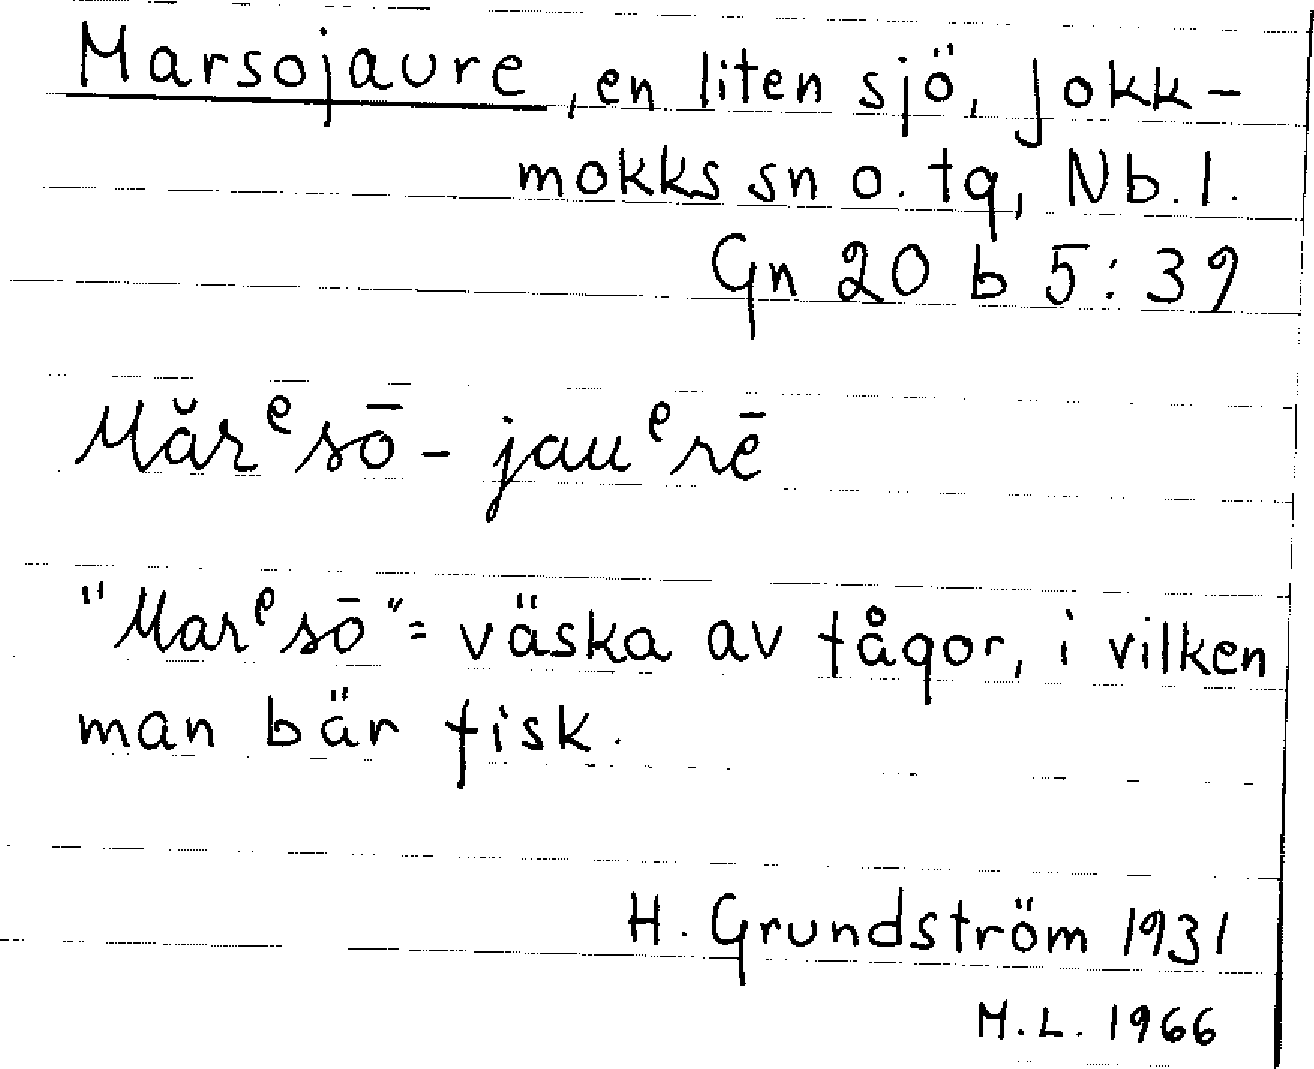 Marsojaure, en liten sjö, Jokk-
mokks sn o. tg, Nb. l.
Gn 20 b 5:39
Mărᵉsō - jauᵉrē
"Marᵉsō" = väska av tågor, i vilken
man bär fisk.
H. Grundström 1931
M.L. 1966